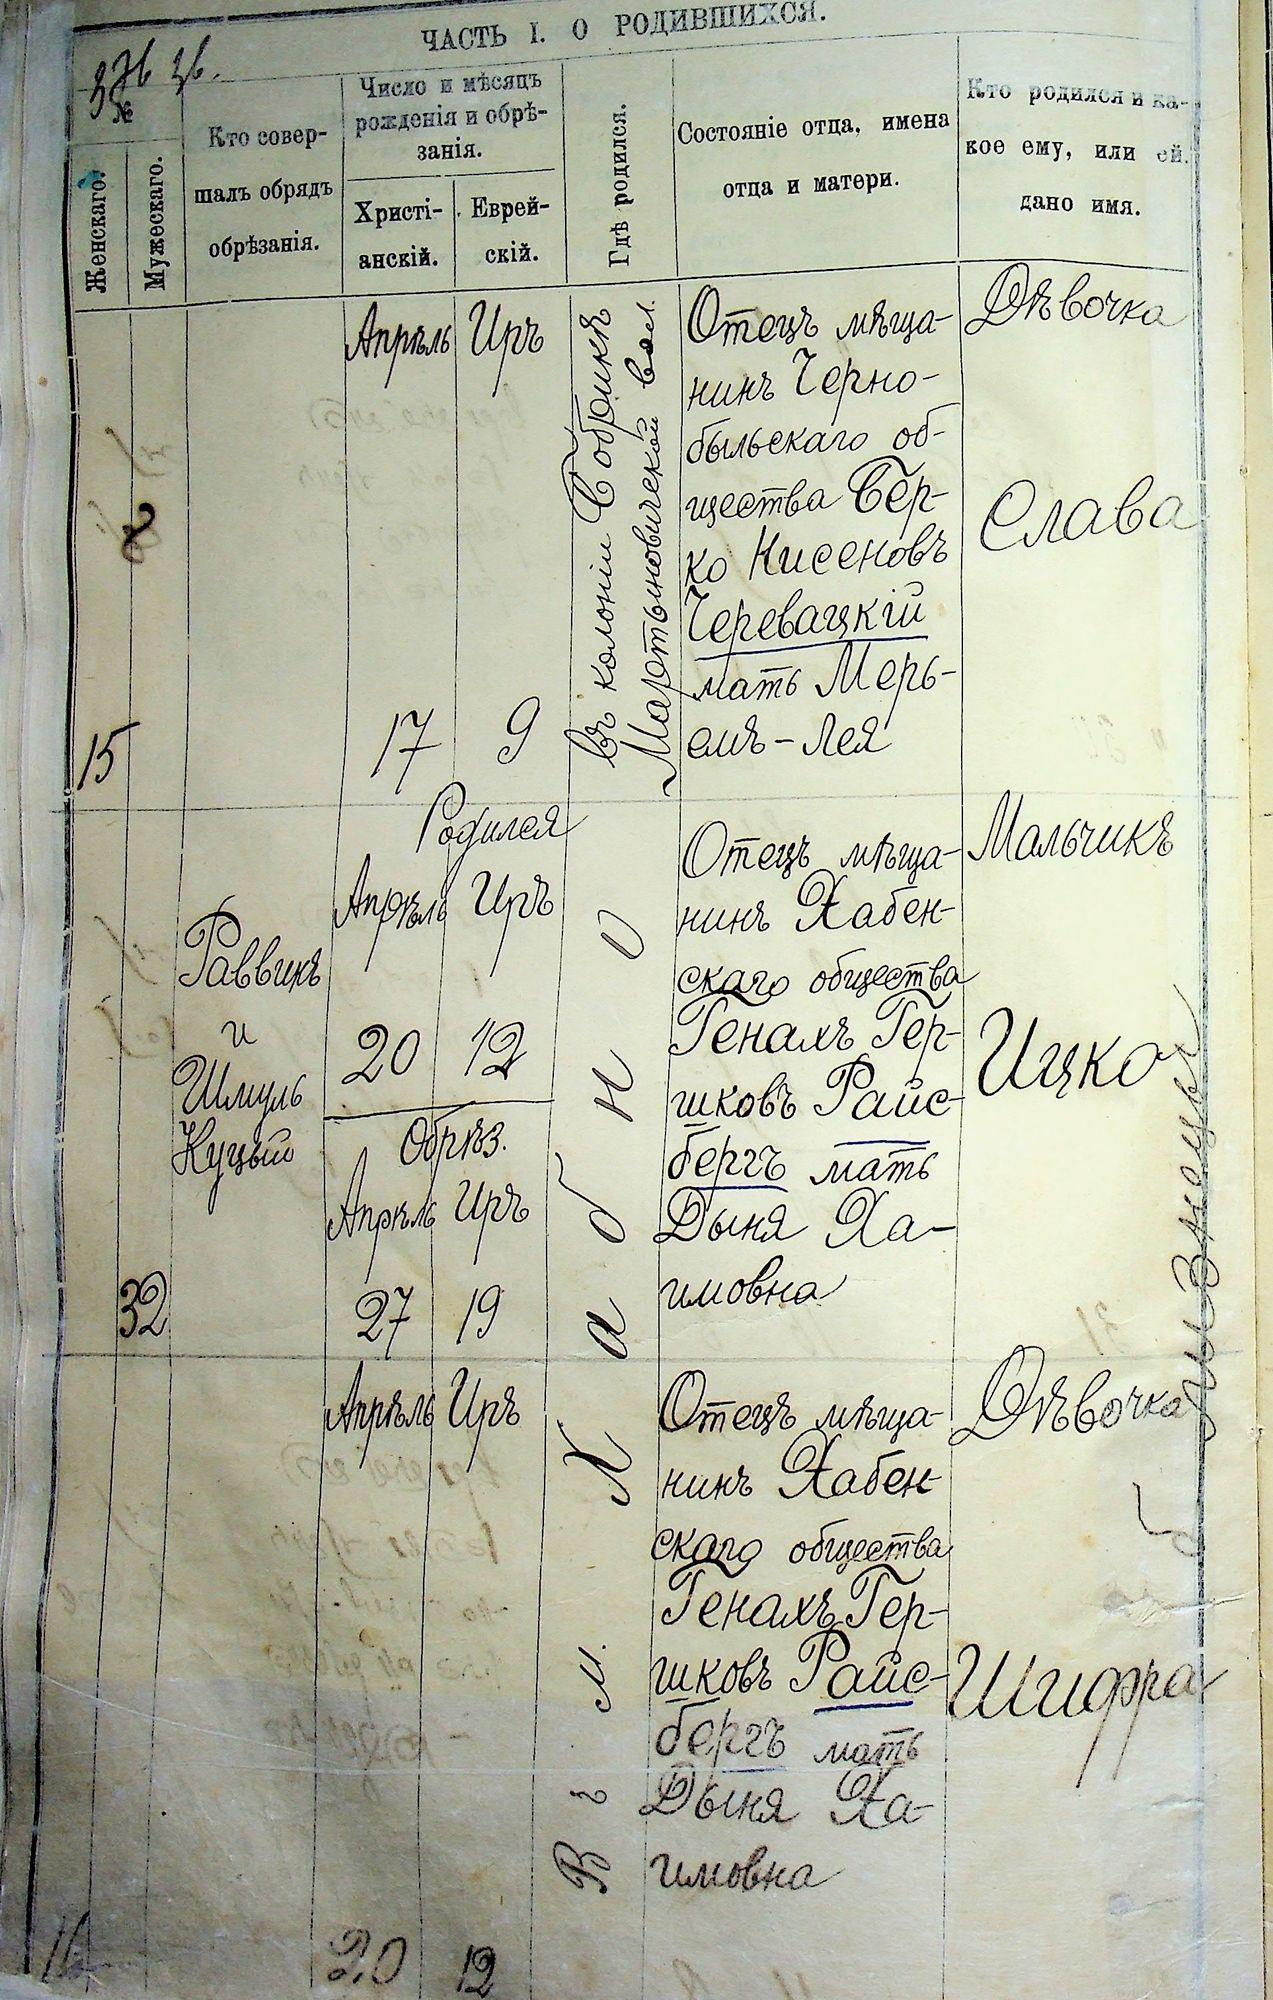 ЧАСТЬ I. О РОДИВШИХСЯ.
№
Женскаго.
Мужескаго.
Кто совер-
шалъ обрядъ
обрѣзанія.
Число и мѣсяцъ
рожденія и обрѣ-
занія.
Христі-
анскій.
Еврей-
скій.
Гдѣ родился.
Состояніе отца, имена
отца и матери.
Кто родился и ка-
кое ему, или ей.
дано имя.
15
Апрѣль
17
Иръ
9
Въ колоніи Бобрикѣ
Мартыновической вол.
Отецъ мѣща-
нинъ Черно-
быльскаго об-
щества Бер-
ко Нисеновъ
Черевацкій
мать Мерь-
емъ-Лея
Дѣвочка
Слава
32
Раввинъ
и
Шмуль
Куцый
Родился
Апрѣль Иръ
20 12
Обрѣз.
Апрѣль Иръ
27 19
Отецъ мѣща-
нинъ Хабен-
скаго общества
Генахъ Гер-
шковъ Райс-
бергъ мать
Дыня Ха-
имовна
Мальчикъ
Ицко
близнецы
16
Апрѣль Иръ
20 12
Въ м. Хабно
Отецъ мѣща-
нинъ Хабен-
скаго общества
Генахъ Гер-
шковъ Райс-
бергъ мать
Дыня Ха-
имовна
Дѣвочка
Шифра